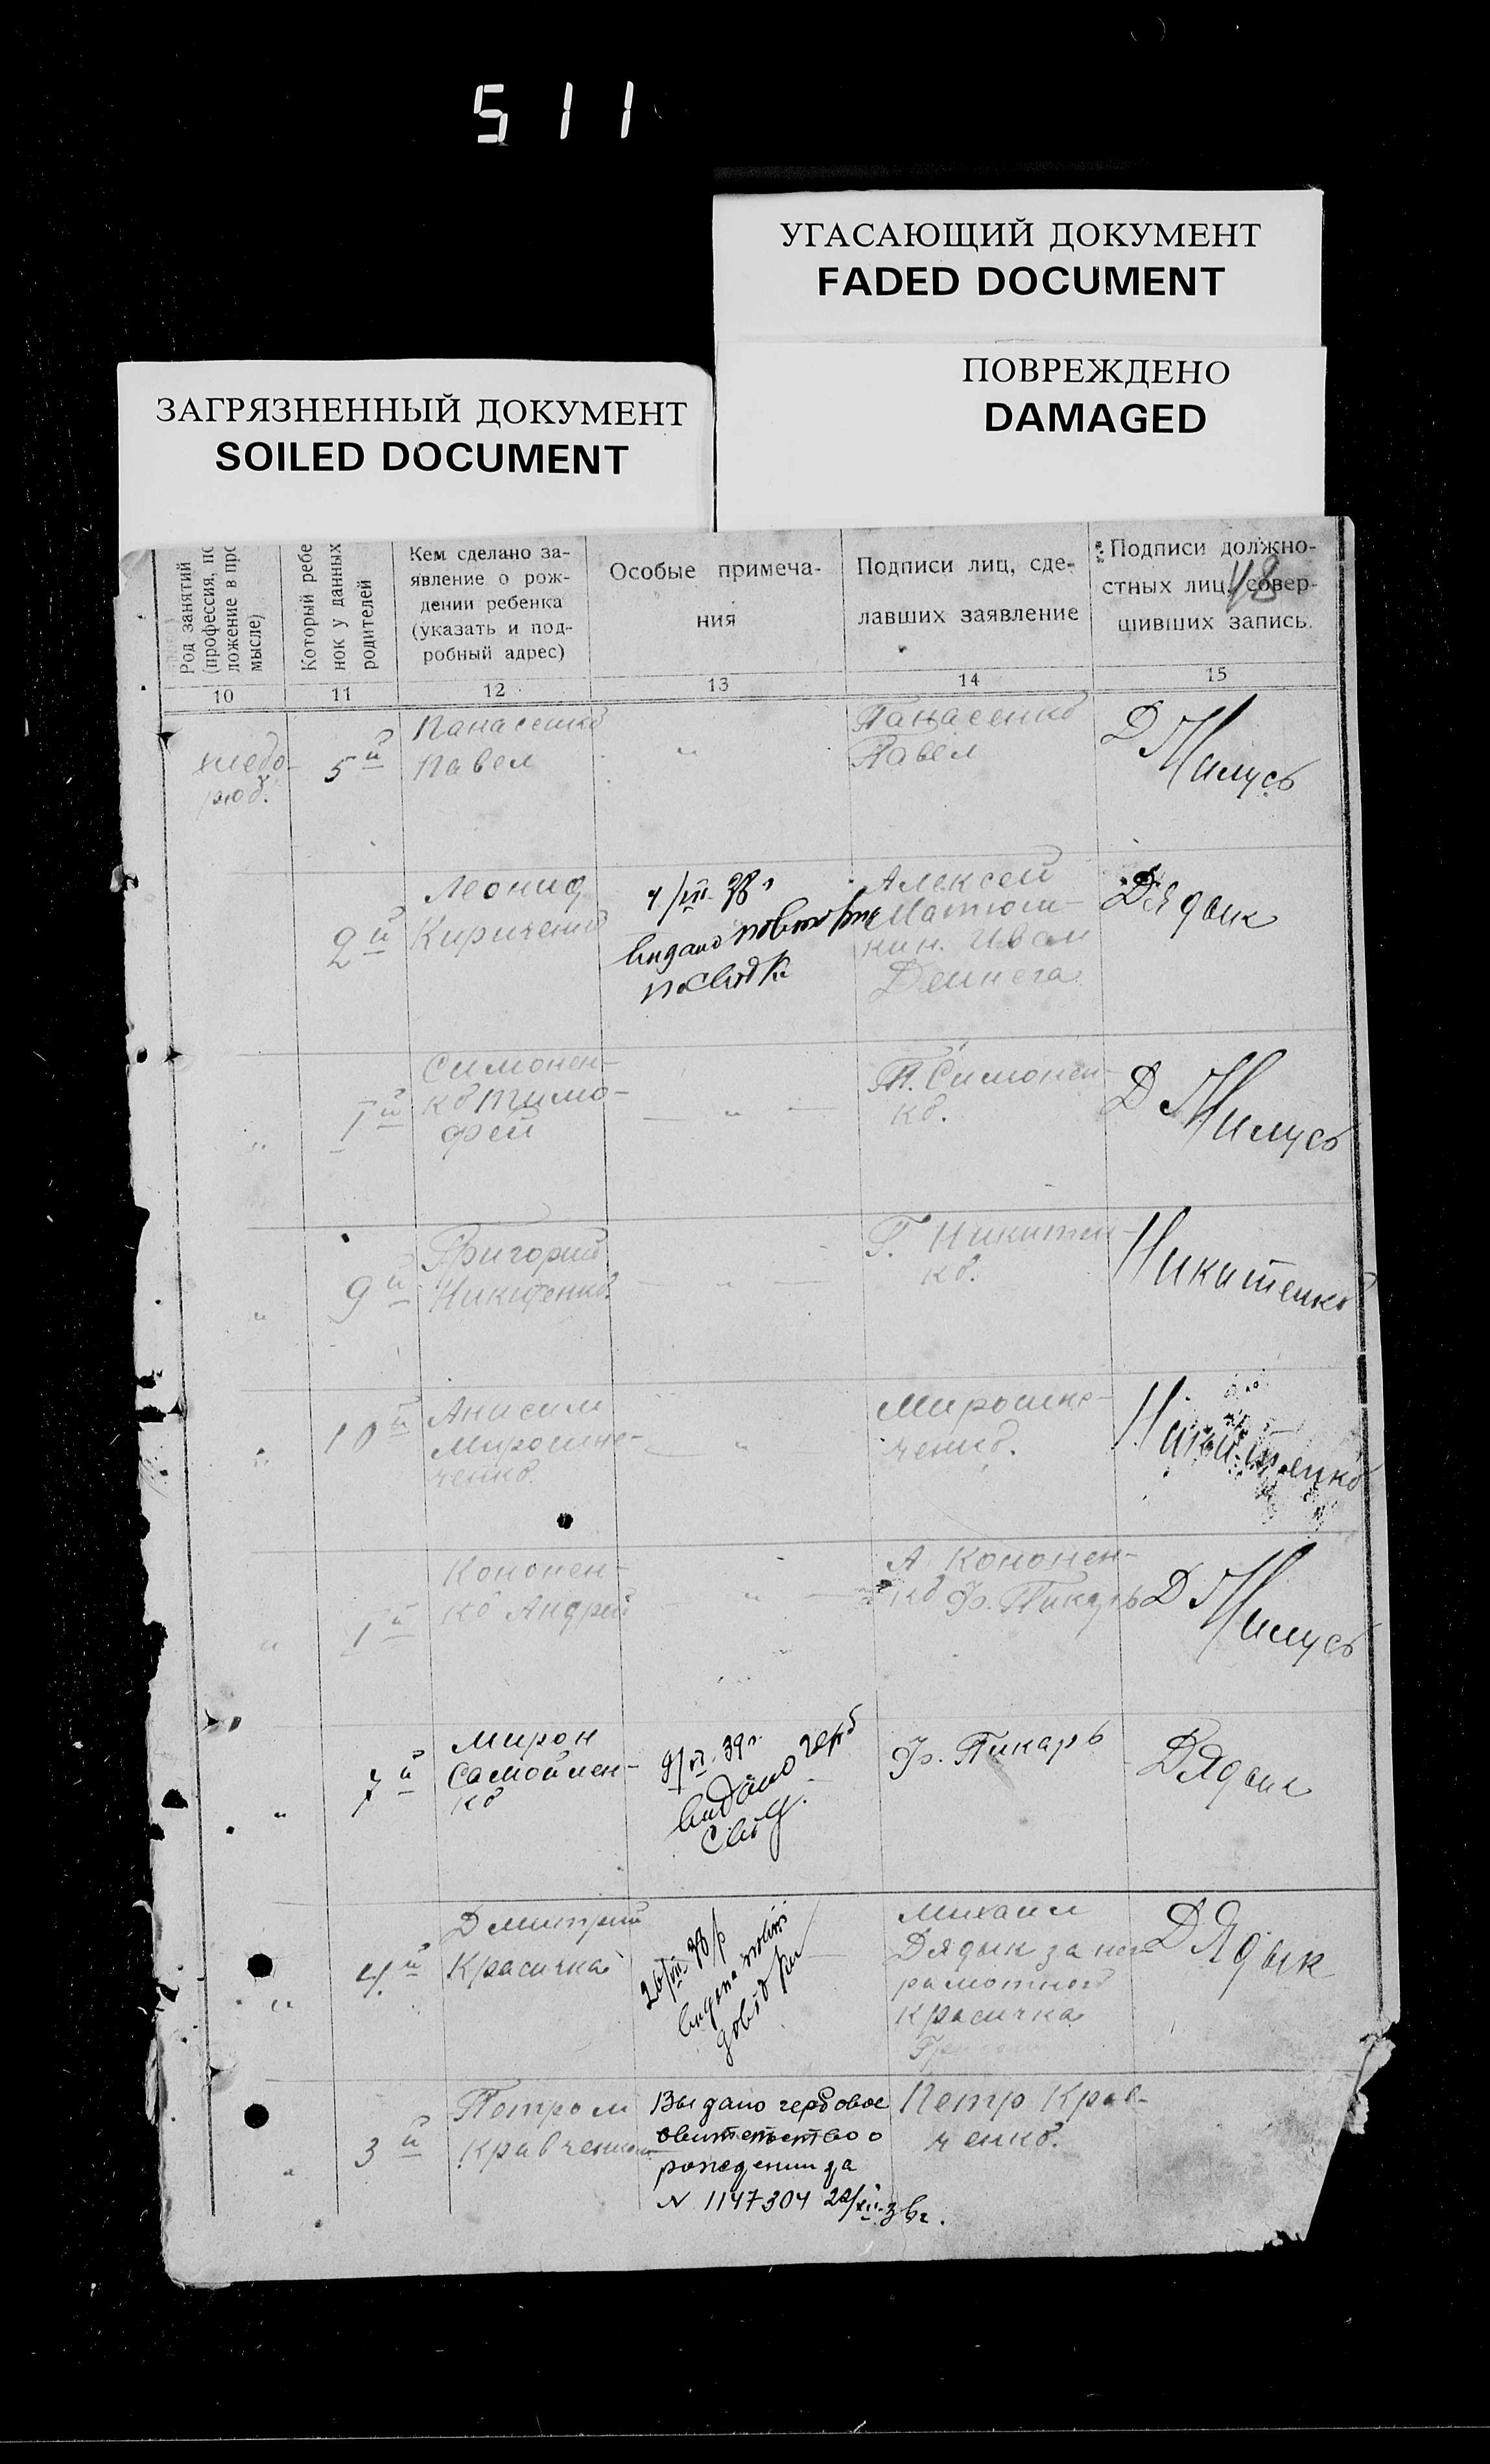 511
УГАСАЮЩИЙ ДОКУМЕНТ
FADED DOCUMENT
ПОВРЕЖДЕНО
DAMAGED
ЗАГРЯЗНЕННЫЙ ДОКУМЕНТ
SOILED DOCUMENT
Род занятий
(профессия, по
ложение в про
мысле)
Который ребе
нок у данных
родителей
Кем сделано за-
явление о рож-
дении ребенка
(указать и под-
робный адрес)
Особые примеча-
ния
Подписи лиц, сде-
лавших заявление
Подписи должно-
стных лиц, совер-
шивших запись.
48
10
11
12
13
14
15
хлебо-
роб.
5й
Панасенко
Павел
"
Панасенко
Павел
Д Милусь
2й
Леонид
Кириченко
4/VII 38 г
видано повторне
Алексей
Матюш-
кин. Иван
Дядык
"
1й
Симонен-
ко Тимо-
фей
— " —
Т. Симонен-
ко.
Д Милусь
"
9й
Григорий
Никитенко.
— " —
Г. Никитен-
ко.
Никитенко
"
10й
Анисим
Мирошни-
ченко.
— "
Мирошни-
ченко.
Никитенко
"
1й
Кононен-
ко Андрей
— " —
А. Кононен-
ко Ф. Пикарь
Д Милусь
"
7й
Мирон
Самойлен-
ко
9/VI 39 г.
видано герб
свід.
Ф. Пикарь
Дядык
"
4й
Дмитрий
Красичка
26/VII 38 р
видана
Михаил
Дядык за нег
рамотного
Красичка
Дядык
"
3й
Петром
Кравченком
Выдано гербовое
свительство о
рождении да
N 1147304 22/XII-38г.
Петр Крав-
ченко.